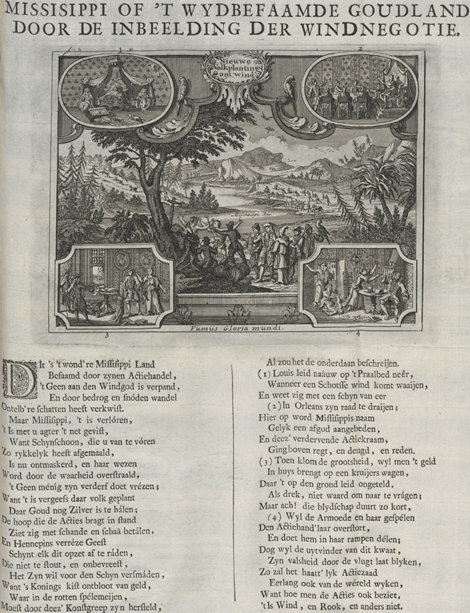 MISSISIPPI OF 'T WYDBEFAAMDE GOUDLAND
DOOR DE INBEELDING DER WINDNEGOTIE.
Nieuwe
Volkplanting
om wind
Fumus Gloria mundi.
3
4
DIt 's 't wond're Missisippi Land
Befaamd door zynen Actiehandel,
't Geen aan den Windgod is verpand,
En door bedrog en snóden wandel
Ontelb're schatten heeft verkwist.
Maar Missisippi, 't is verlóren,
't Is met u agter 't net gevist,
Want Schynschoon, die u van te vóren
Zo rykkelyk heeft afgemaald,
Is nu ontmaskerd, en haar wezen
Word door de waarheid overstraald,
't Geen ménig zyn verderf doet vrézen;
Want 't is vergeefs daar volk geplant
Daar Goud nog Zilver is te hálen;
De hoop die de Acties bragt in stand
Ziet zig met schande en schaâ betálen,
En Hennepins verréze Geest
Schynt elk dit opzet af te ráden,
Die niet te stout, en onbevreest,
Het Zyn wil voor den Schyn versmáden,
Want 's Konings kist ontbloot van geld,
Waar in de rotten spélemeijen,
Moest door deez' Konstgreep zyn hersteld,
Al zou het de onderdaan beschreijen.
(1) Louis leid naauw op 't Praalbed neêr,
Wanneer een Schotsse wind komt waaijen,
En weet zig met een schyn van eer
(2) In Orleans zyn raad te draijen;
Hier op word Missisippis naam
Gelyk een afgod aangebeden,
En deez' verdervende Actiekraam,
Ging boven regt, en deugd, en reden.
(3) Toen klom de grootsheid, wyl men 't geld
In huys brengt op een kruijers wagen,
Daar 't op den grond leid ongeteld,
Als drek, niet waard om naar te vrágen;
Maar ach! die blydschap duurt zo kort,
(4) Wyl de Armoede en haar gespélen
Den Actiehand'laar overstort,
En doet hem in haar rampen délen;
Dog wyl de uytvinder van dit kwaat,
Zyn valsheid door de vlugt laat blyken,
Zo zal het haatt'lyk Actiezaad
Eerlang ook van de wéreld wyken,
Want hoe men de Acties ook beziet,
't Is Wind, en Rook, en anders niet.